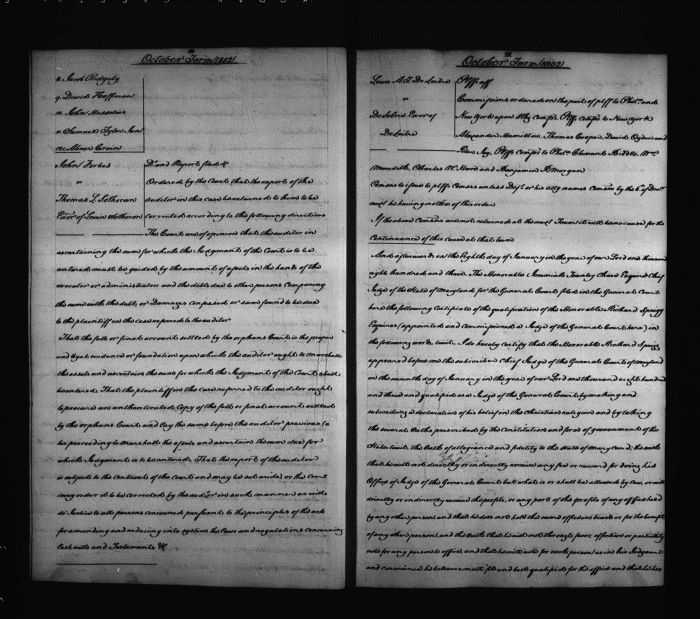 October Term 1802
a. Jacob Ridgely
q. David Hoffman
n. John
a. Samuel Tyler Junr
John Forbes
"
Thomas L Sothoran
Exor of Levin Sothoron
Dr and Report filed &
Ordered by the Court that the report of the
auditor in this case be returned to him to be
corrected according to the following directions
The Court are of opinion that the auditor in
ascertaining the sum for which the Judgments of the Court is to be
entered must be guided by the amount of assets in the hands of the
executor or administrator and the debts due to other persons Comparing
the sum with the debt or Damages confessed or sum found to be due
to the plaintiff in the case referred to the auditor
That the full or final accounts settled by the orphans Court is the proper
and legal evidence or foundation upon which the auditor ought to marshall
the assets and ascertain the sum for which the Judgment of the Court shall
be entered. That the plaintiff in the case referred to the auditor ought
to procure an authenticated Copy of the full or final accounts settled
by the orphans Court and lay the same before the auditor previous to
his proceeding to marshall the assets and ascertain the sum due for
which Judgment is to be entered. That the report of the auditor
is subject to the Controul of the Court and may be set aside or the Court
may order it to be corrected by the auditor in such manner as will
do Justice to all persons concerned pursuant to the principles of the act
for amending and reducing into system the laws and regulations concerning
last wills and Testaments &c
October Term 1802
Lewis A. T. De
"
Exor of
Pltff off
Commission ordered on the part of pltff to Phila. and
New York upon
Alexander Hamilton, Thomas Cooper, David Ogden and
Clement
Meredith, Charles W. Hare and Benjamin R Morgan
must be having notice of this order
If the above Comrs are not returned at the next Term it will be no cause for the
Continuance of this cause at that term
And afterwards on the Eighth day of January in the year of our Lord one thousand
eight hundred and three The Honorable Jeremiah Townly Chase Esquire Chief
Judge of the State of Maryland for the General Court filed in the General Court
here the following Certificate of the qualification of the Honorable Richard Sprigg
Esquire (appointed and Commissioned a Judge of the General Court here) in
the following words to wit. I do hereby certify that the Honorable Richard Sprigg
appeared before me the subscriber Chief Judge of the General Court of Maryland
on the seventh day of January in the year of our Lord one thousand eight hundred
and three and qualified as a Judge of the General Court by making and
subscribing a declaration of his belief in the Christian religion and by taking
the several Oaths prescribed by the Constitution and form of government of the
State to wit the Oath of allegiance and fidelity to the State of Maryland; the oath
that he will not directly or indirectly receive any fee or reward for doing his
Office of Judge of the General Court but what is or shall be allowed by law, or will
directly or indirectly receive the profits, or any part of the profits of any office held
by any other person and that he does not hold the same office in trust or for the benefit
of any other person; and the oath that he will not through favor, affection or partiality
vote for any person to office, and that he will vote for such person as in his Judgment
and conscience he believes most fit and best qualified for the office, and that he has